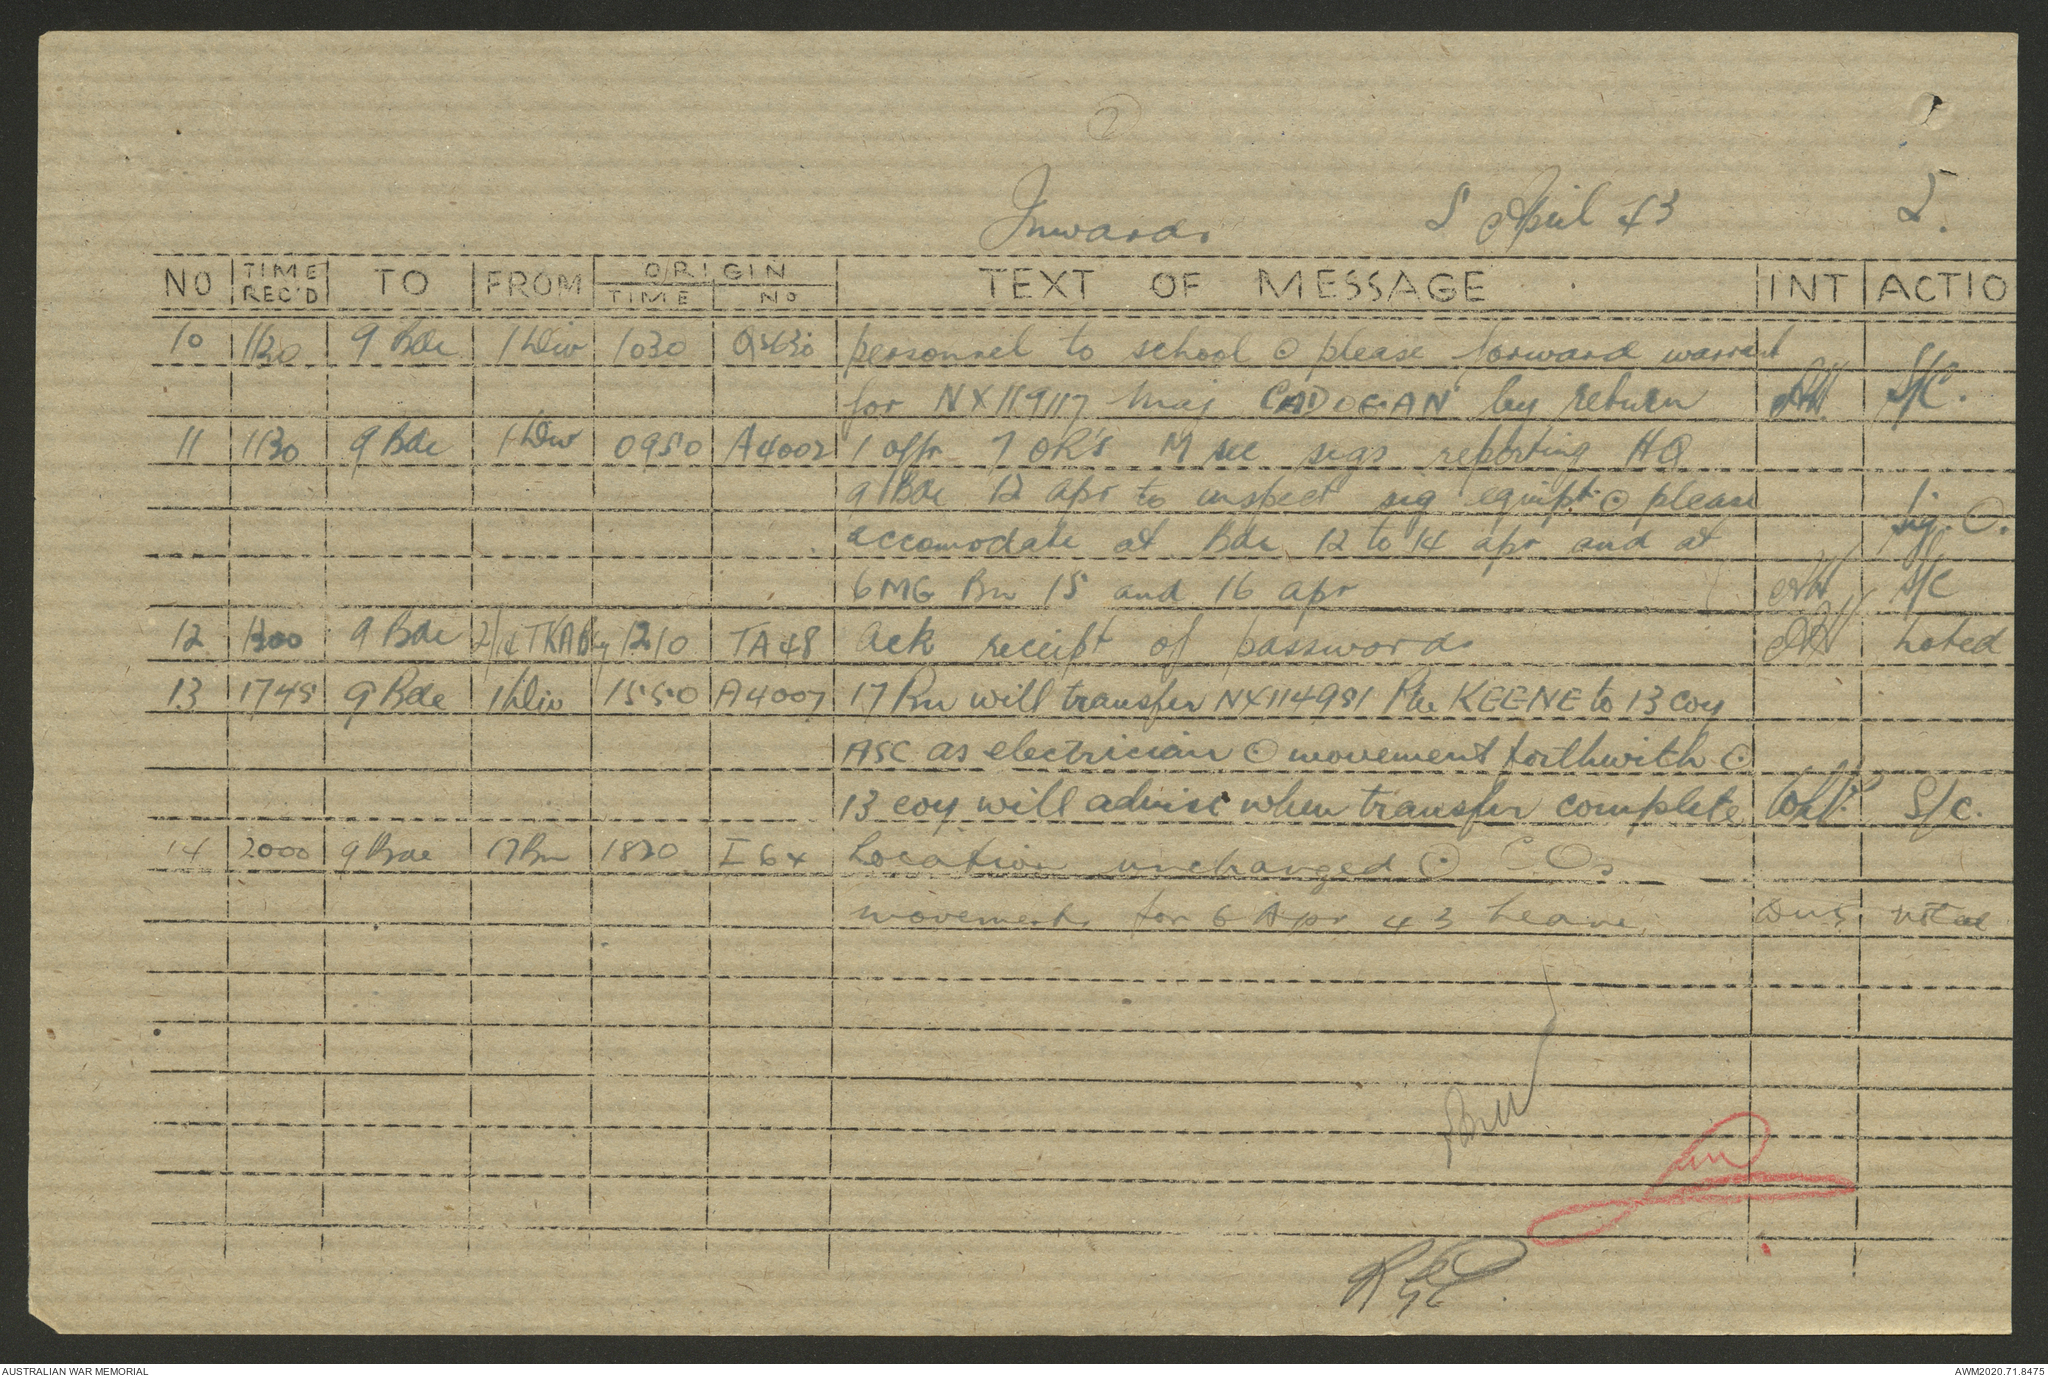 2
Inwards 5 April 43 5.
NO TIME REC'D TO FROM ORIGIN TIME NO TEXT OF MESSAGE INT ACTIO
10 1130 9 Bde 1 Div 1030 personnel to school ⊙ please forward warrant
for NX119117 Maj CADOGAN by return S/C.
11 1130 9 Bde 1 Div 0950 A4002 1 offr 7 OR's M sec sigs reporting HQ
9 Bde 12 apr to inspect sig equipt ⊙ please
accomodate at Bde 12 to 14 apr and at Sig. O.
6 MG Bn 15 and 16 apr S/C
12 1300 9 Bde 1210 TA48 ack receipt of passwords noted
13 1745 9 Bde 1 Div 1550 A4007 17 Bn will transfer NX114981 Pte KEENE to 13 coy
ASC as electrician ⊙ movement forthwith ⊙
13 coy will advise when transfer complete S/C.
14 2000 9 Bde 17 Bn 1830 I 64 Location unchanged ⊙ COs
movements for 6 Apr 43 Leave noted
AUSTRALIAN WAR MEMORIAL AWM2020.71.8475